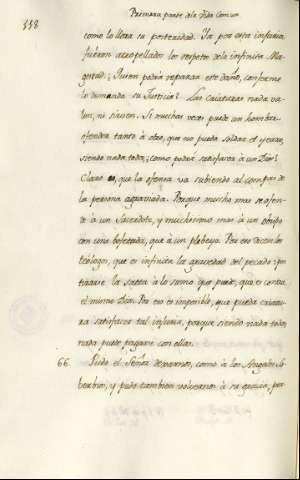 338
Primera parte de la Vida Comun
como lo llora su posteridad. Ya por esta injuria
fueron atropellados los respetos de la infinita Ma-
gestad; Quien podia reparar este daño, conforme
lo demanda su Justicia? Las criaturas nada va-
len; ni sirven. Si muchas veces puede un hombre
ofender tanto à otro, que no pueda soldar el yerro,
siendo nada todos; como podrà satisfacer à un Dios?
Claro es, que la ofensa va subiendo al compas de
la persona agraviada. Porque mucho mas se ofen-
de à un Sacerdote, y muchissimo mas à un Obispo
con una bofetada, que à un plebeyo. Por eso dicen los
teologos, que es infinita la gravedad del pecado: por
tirarse la saeta à lo sumo que puede, que es contra
el mismo Dios. Por eso es imposible, que pueda criatu-
ra satisfacer tal injuria, porque siendo nada todos,
nada puede pagarse con ellas.
66. Pudo el Señor dexarnos, como à los Angeles so-
berbios, y pudo tambien volvernos à su gracia, per-